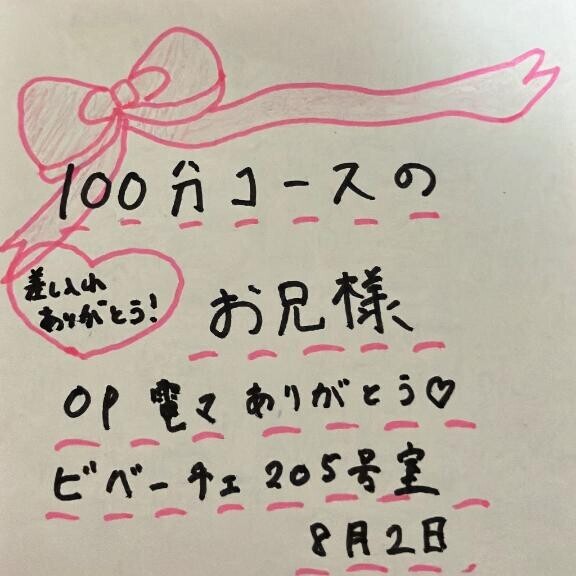 100分コースの
差し入れ
ありがとう!
お兄様
OP 電マ ありがとう♡
ビバーチェ 205号室
8月2日